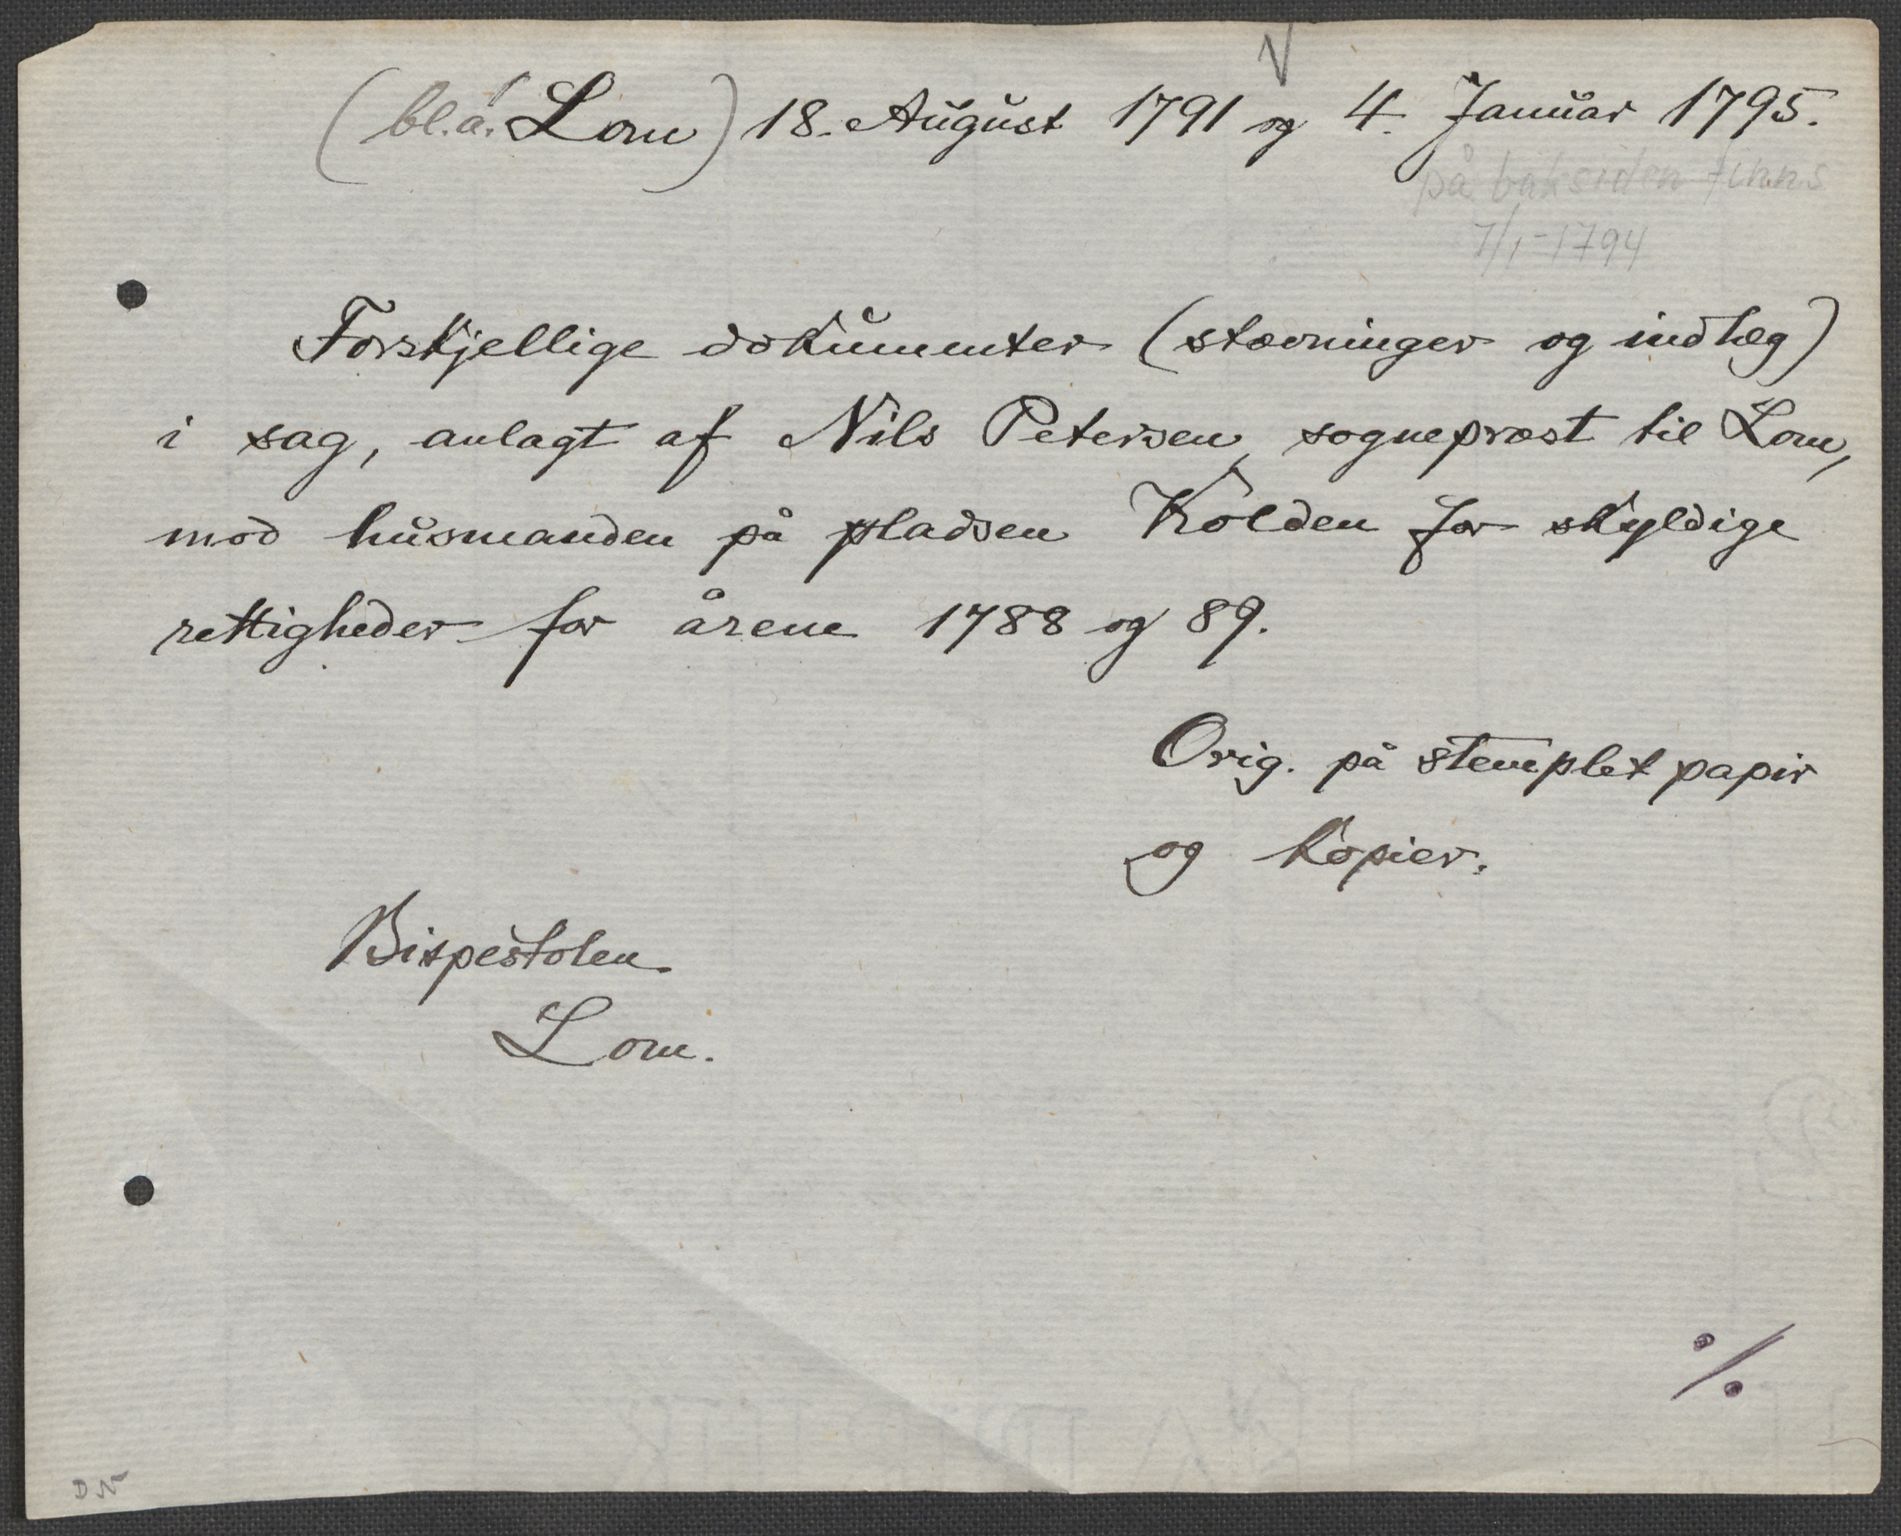 (bl.a. Lom) 18. August 1791 og 4. Januar 1795.
på baksiden finns
7/1-1794
Forskjellige dokumenter (stævninger og indlæg)
i sag, anlagt af Nils Petersen, sognepræst til Lom,
mod husmanden på pladsen Kolden for skyldige
rettigheder for årene 1788 og 89.
Orig. på stemplet papir
og kopier.
Bispestolen
Lom.